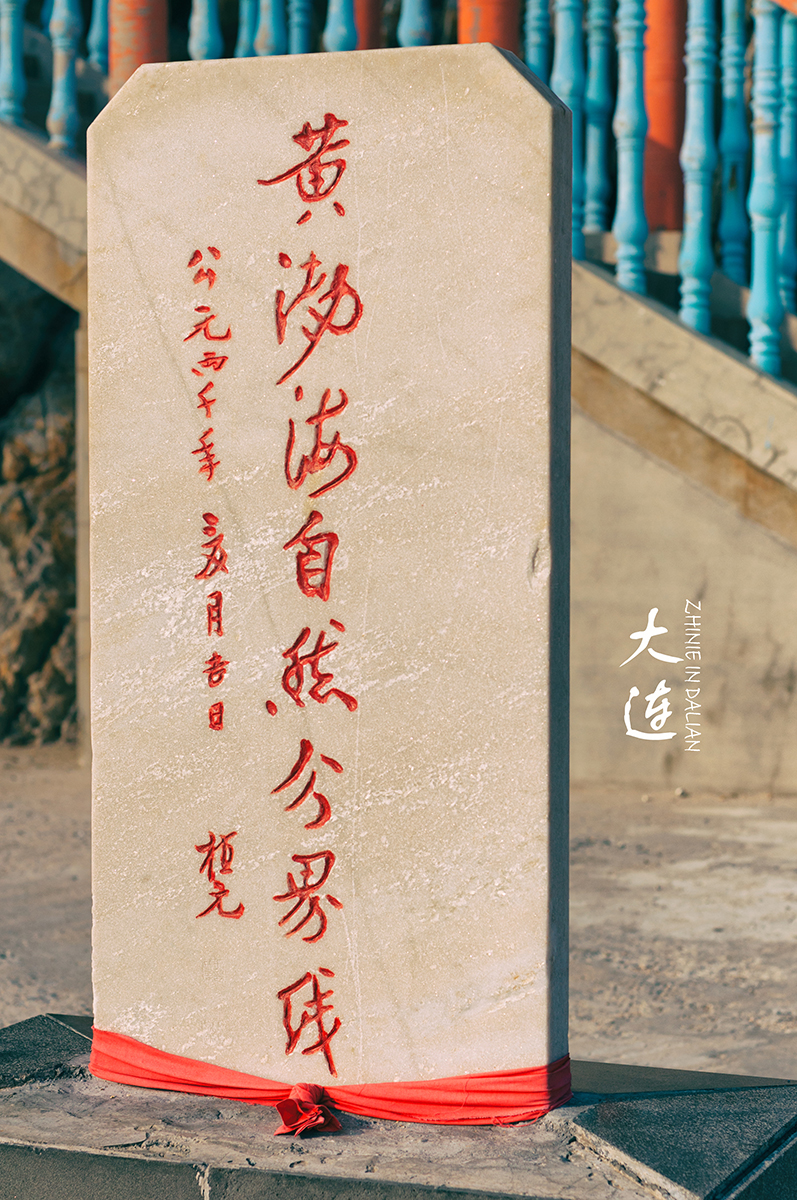 黄渤海自然分界线
公元两千年 月吉日
桓元
大连
ZHINIE IN DALIAN